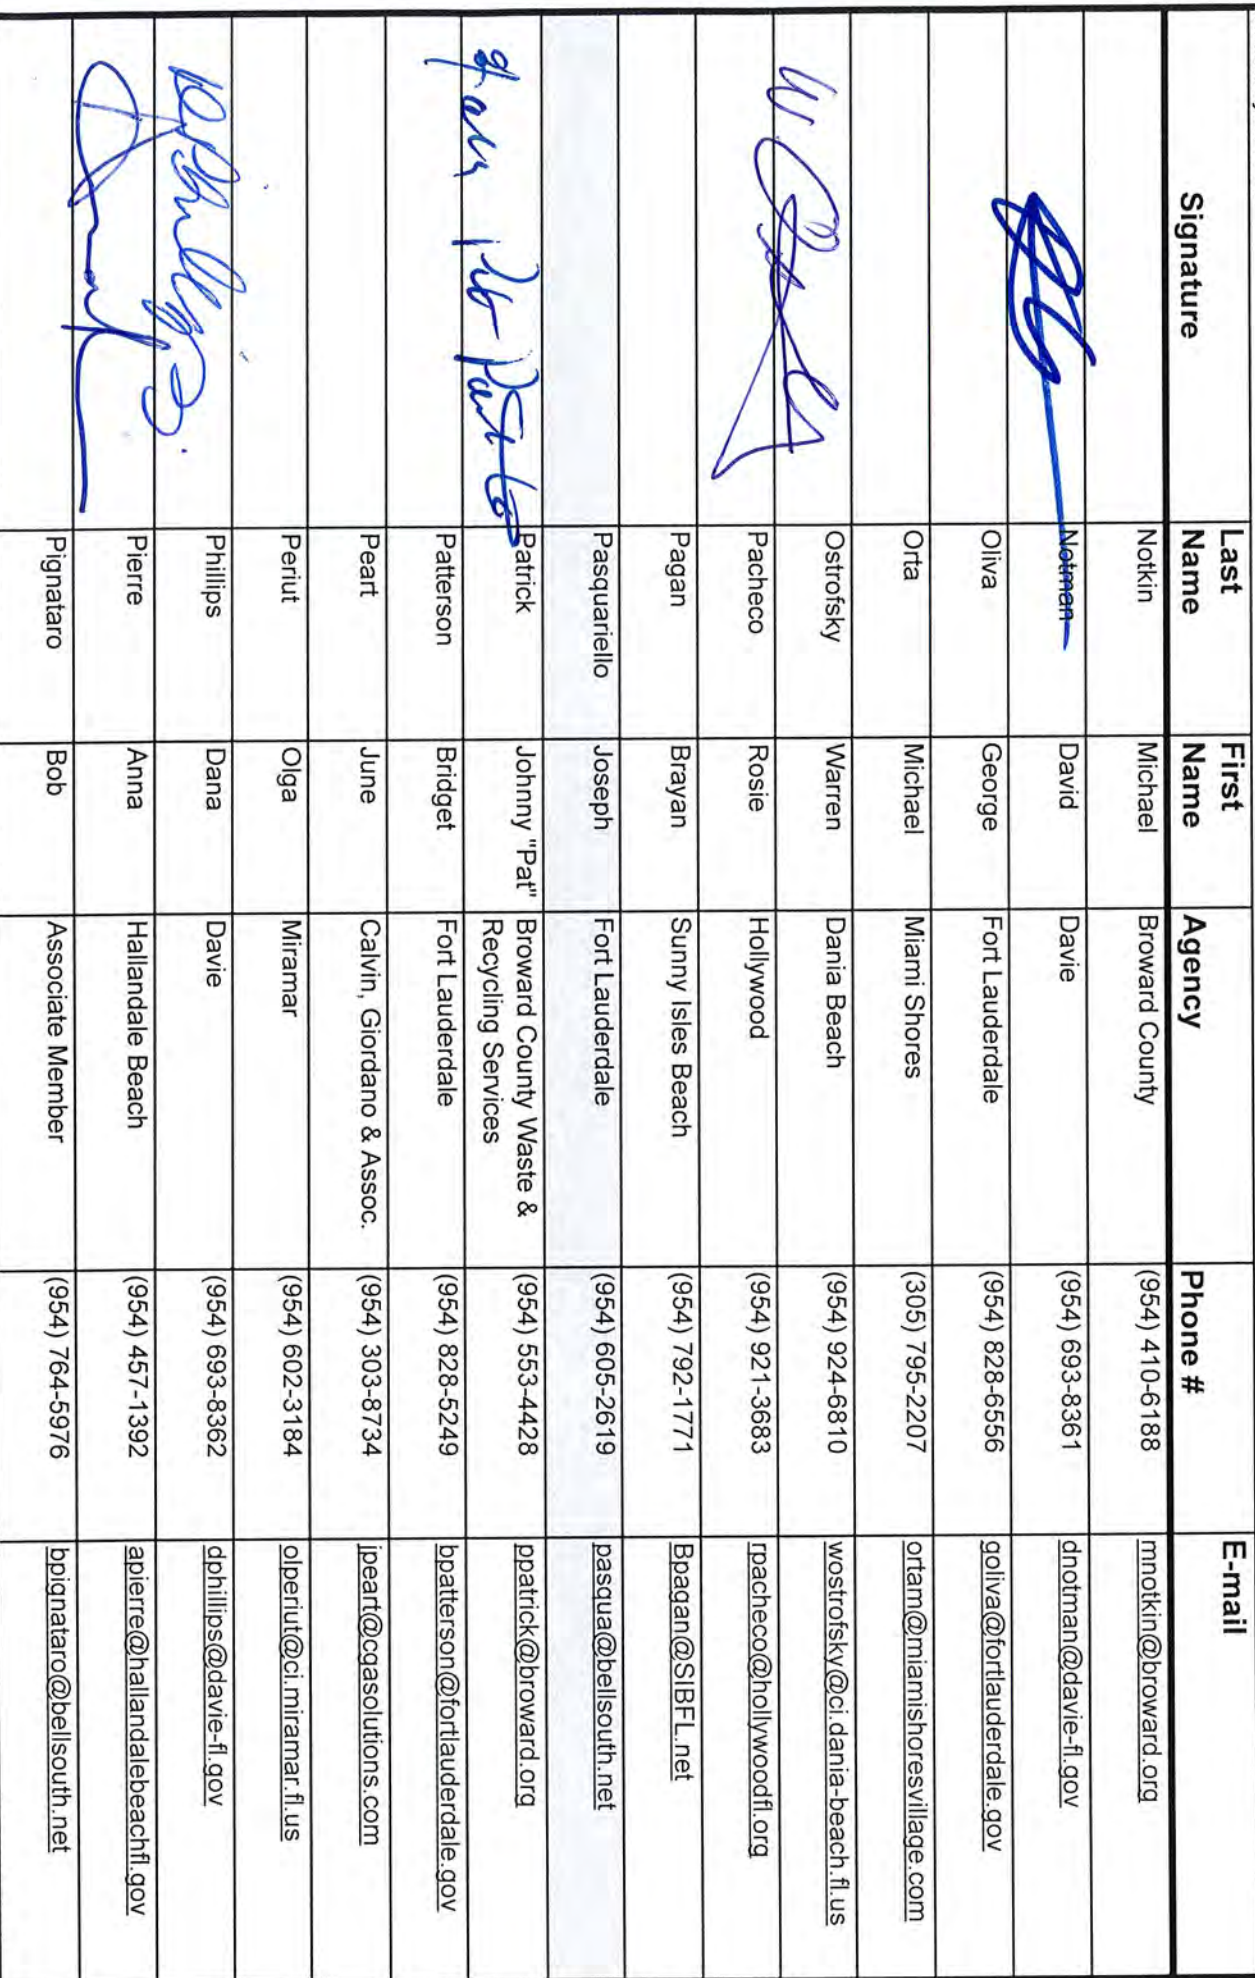 Signature Last Name First Name Agency Phone # E-mail
Notkin Michael Broward County (954) 410-6188 mnotkin@broward.org
Notman David Davie (954) 693-8361 dnotman@davie-fl.gov
Oliva George Fort Lauderdale (954) 828-6556 goliva@fortlauderdale.gov
Orta Michael Miami Shores (305) 795-2207 ortam@miamishoresvillage.com
Ostrofsky Warren Dania Beach (954) 924-6810 wostrofsky@ci.dania-beach.fl.us
Pacheco Rosie Hollywood (954) 921-3683 rpacheco@hollywoodfl.org
Pagan Brayan Sunny Isles Beach (954) 792-1771 Bpagan@SIBFL.net
Pasquariello Joseph Fort Lauderdale (954) 605-2619 pasqua@bellsouth.net
Patrick Johnny "Pat" Broward County Waste & Recycling Services (954) 553-4428 ppatrick@broward.org
Patterson Bridget Fort Lauderdale (954) 828-5249 bpatterson@fortlauderdale.gov
Peart June Calvin, Giordano & Assoc. (954) 303-8734 jpeart@cgasolutions.com
Periut Olga Miramar (954) 602-3184 olperiut@ci.miramar.fl.us
Phillips Dana Davie (954) 693-8362 dphillips@davie-fl.gov
Pierre Anna Hallandale Beach (954) 457-1392 apierre@hallandalebeachfl.gov
Pignataro Bob Associate Member (954) 764-5976 bpignataro@bellsouth.net